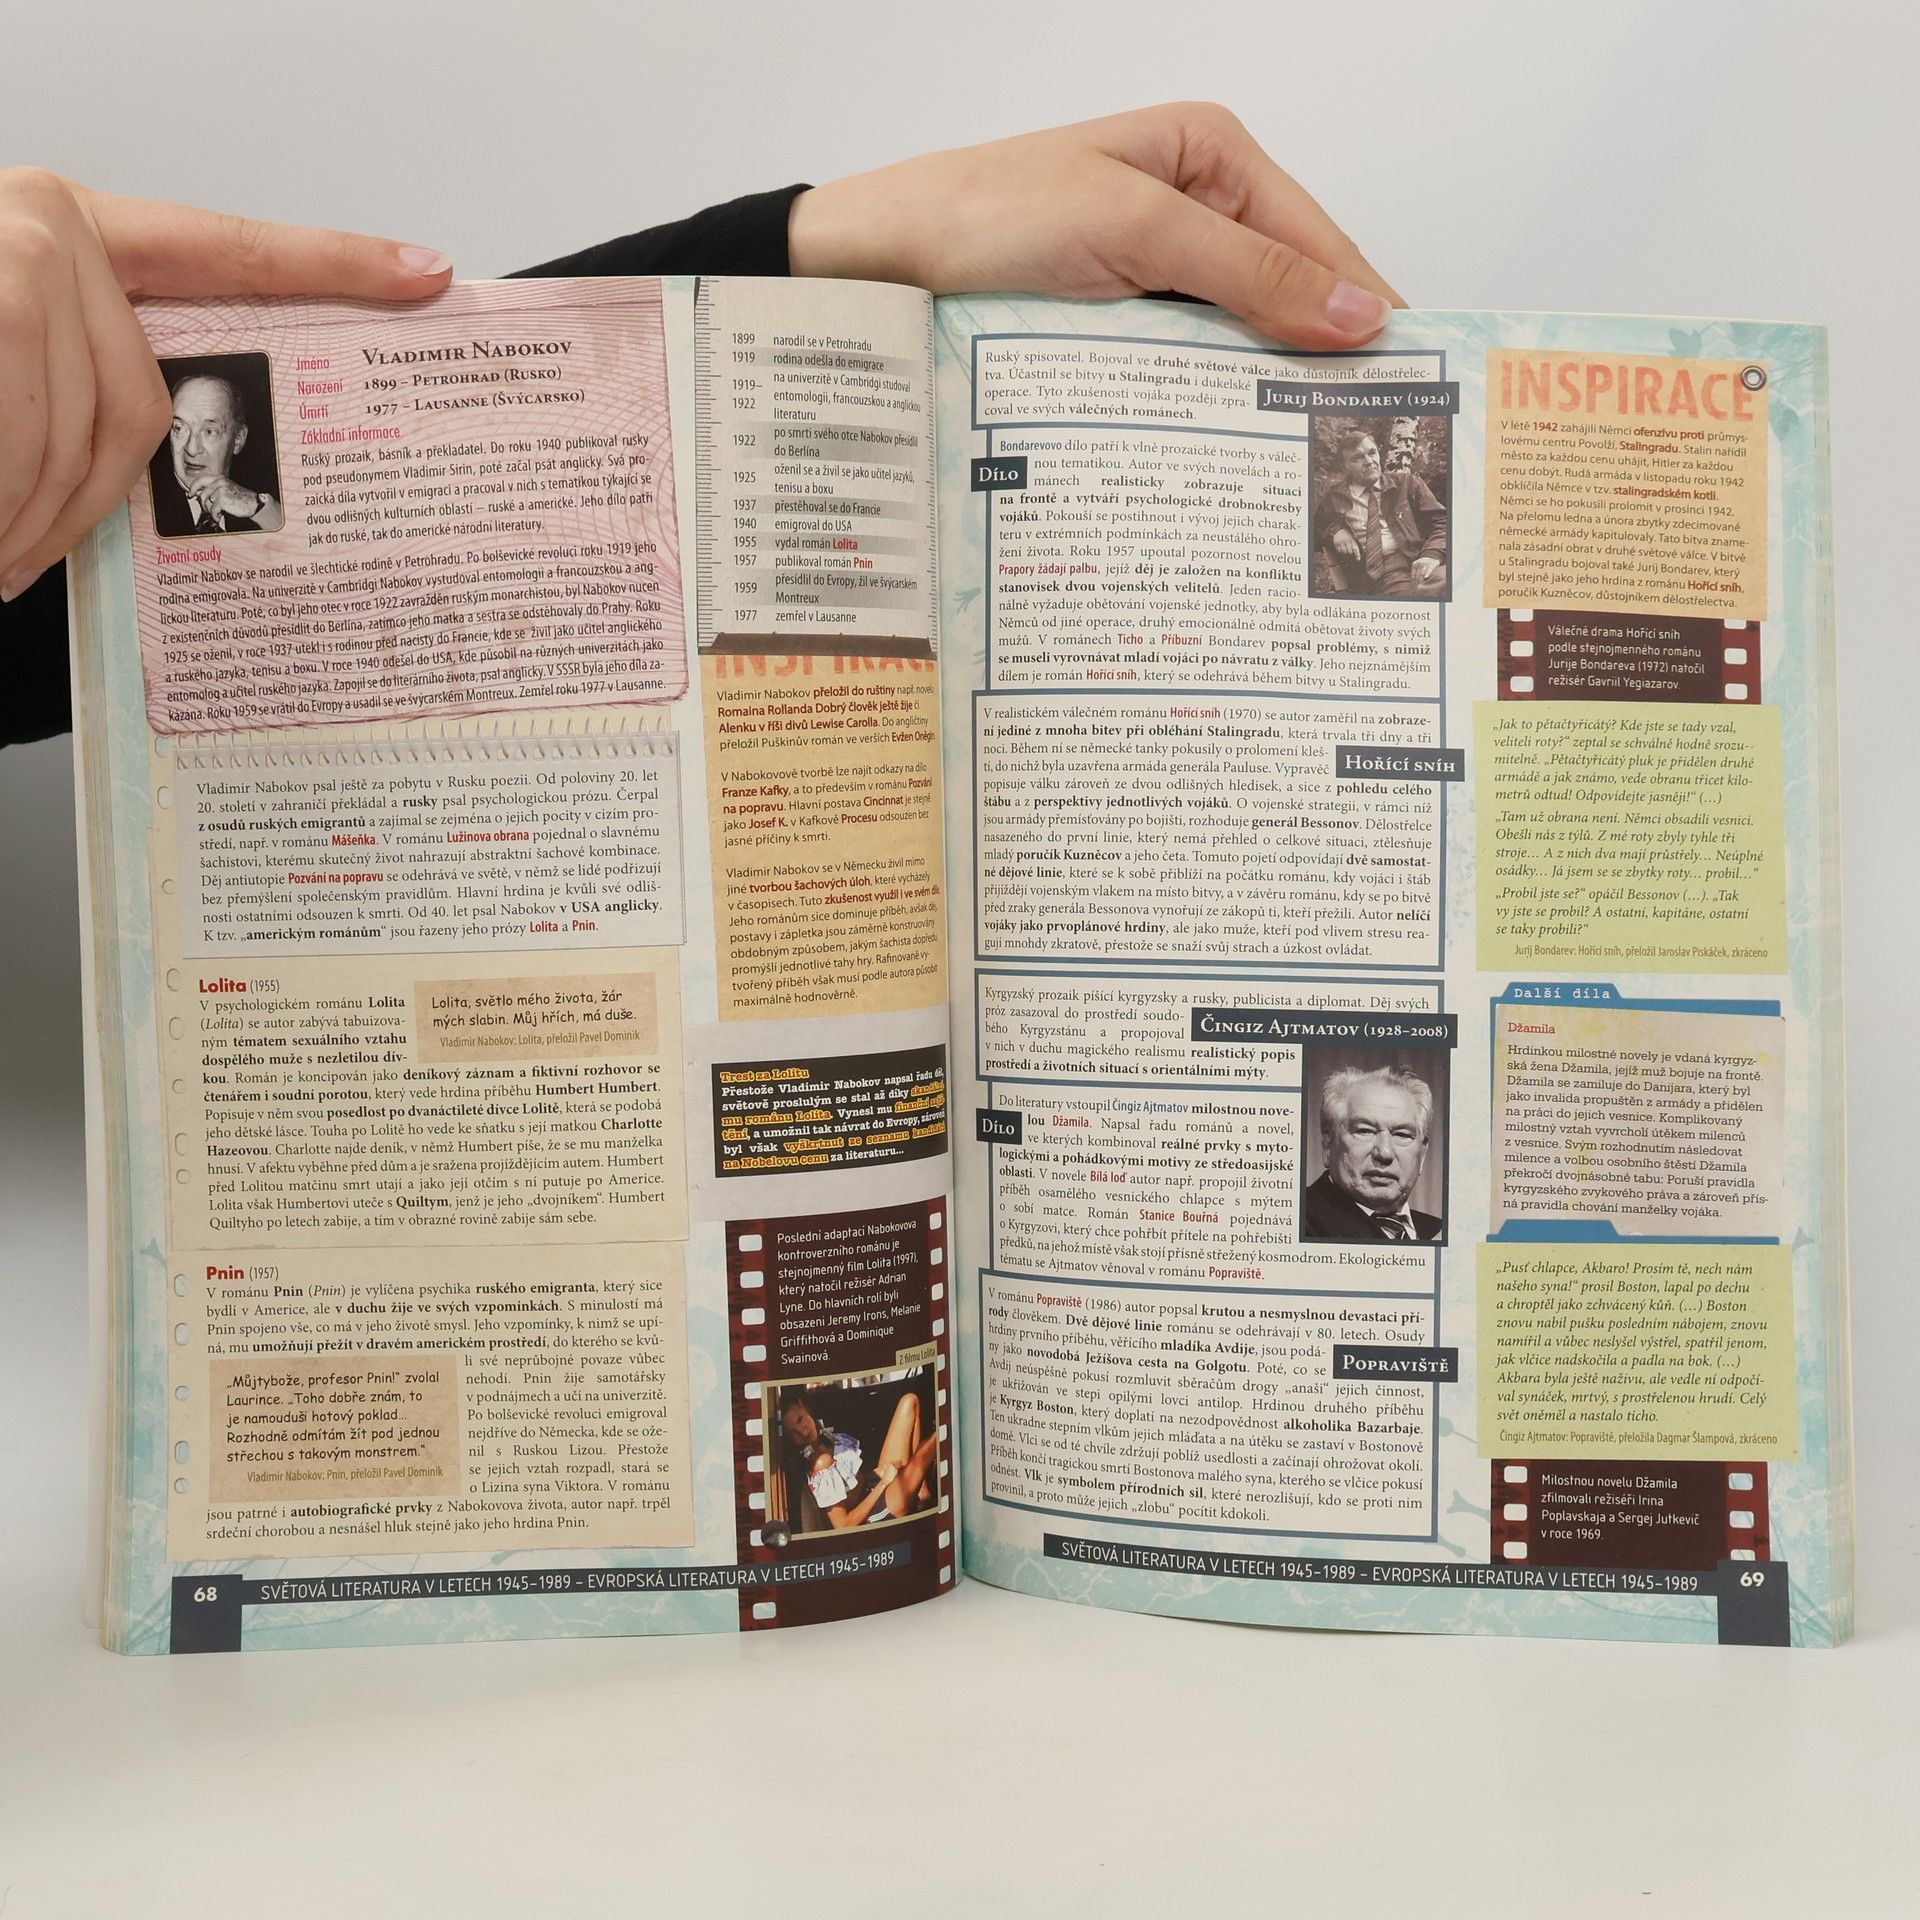 Jméno VLADIMIR NABOKOV
Narození 1899 – PETROHRAD (RUSKO)
Úmrtí 1977 – LAUSANNE (ŠVÝCARSKO)
Základní informace
Ruský prozaik, básník a překladatel. Do roku 1940 publikoval rusky
pod pseudonymem Vladimir Sirin, poté začal psát anglicky. Svá pro-
zaická díla vytvořil v emigraci a pracoval v nich s tematikou týkající se
dvou odlišných kulturních oblastí – ruské a americké. Jeho dílo patří
jak do ruské, tak do americké národní literatury.
Životní osudy
Vladimir Nabokov se narodil ve šlechtické rodině v Petrohradu. Po bolševické revoluci roku 1919 jeho
rodina emigrovala. Na univerzitě v Cambridgi Nabokov vystudoval entomologii a francouzskou a ang-
lickou literaturu. Poté, co byl jeho otec v roce 1922 zavražděn ruským monarchistou, byl Nabokov nucen
z existenčních důvodů přesídlit do Berlína, zatímco jeho matka a sestra se odstěhovaly do Prahy. Roku
1925 se oženil, v roce 1937 utekl i s rodinou před nacisty do Francie, kde se živil jako učitel anglického
a ruského jazyka, tenisu a boxu. V roce 1940 odešel do USA, kde působil na různých univerzitách jako
entomolog a učitel ruského jazyka. Zapojil se do literárního života, psal anglicky. V SSSR byla jeho díla za-
kázána. Roku 1959 se vrátil do Evropy a usadil se ve švýcarském Montreux. Zemřel roku 1977 v Lausanne.
Vladimir Nabokov psal ještě za pobytu v Rusku poezii. Od poloviny 20. let
20. století v zahraničí překládal a rusky psal psychologickou prózu. Čerpal
z osudů ruských emigrantů a zajímal se zejména o jejich pocity v cizím pro-
středí, např. v románu Mášeňka. V románu Lužinova obrana pojednal o slavném
šachistovi, kterému skutečný život nahrazují abstraktní šachové kombinace.
Děj antiutopie Pozvání na popravu se odehrává ve světě, v němž se lidé podřizují
bez přemýšlení společenským pravidlům. Hlavní hrdina je kvůli své odliš-
nosti ostatními odsouzen k smrti. Od 40. let psal Nabokov v USA anglicky.
K tzv. „americkým románům“ jsou řazeny jeho prózy Lolita a Pnin.
Lolita (1955)
V psychologickém románu Lolita
(Lolita) se autor zabývá tabuizova-
ným tématem sexuálního vztahu
dospělého muže s nezletilou dív-
kou. Román je koncipován jako deníkový záznam a fiktivní rozhovor se
čtenářem i soudní porotou, který vede hrdina příběhu Humbert Humbert.
Popisuje v něm svou posedlost po dvanáctileté dívce Lolitě, která se podobá
jeho dětské lásce. Touha po Lolitě ho vede ke sňatku s její matkou Charlotte
Hazeovou. Charlotte najde deník, v němž Humbert píše, že se mu manželka
hnusí. V afektu vyběhne před dům a je sražena projíždějícím autem. Humbert
před Lolitou matčinu smrt utají a jako její otčím s ní putuje po Americe.
Lolita však Humbertovi uteče s Quiltym, jenž je jeho „dvojníkem“. Humbert
Quiltyho po letech zabije, a tím v obrazné rovině zabije sám sebe.
Lolita, světlo mého života, žár
mých slabin. Můj hřích, má duše.
Vladimir Nabokov: Lolita, přeložil Pavel Dominik
Pnin (1957)
V románu Pnin (Pnin) je vylíčena psychika ruského emigranta, který sice
bydlí v Americe, ale v duchu žije ve svých vzpomínkách. S minulostí má
Pnin spojeno vše, co má v jeho životě smysl. Jeho vzpomínky, k nimž se upí-
ná, mu umožňují přežít v dravém americkém prostředí, do kterého se kvů-
li své neprůbojné povaze vůbec
nehodí. Pnin žije samotářsky
v podnájmech a učí na univerzitě.
Po bolševické revoluci emigroval
nejdříve do Německa, kde se ože-
nil s Ruskou Lizou. Přestože
se jejich vztah rozpadl, stará se
o Lizina syna Viktora. V románu
jsou patrné i autobiografické prvky z Nabokovova života, autor např. trpěl
srdeční chorobou a nesnášel hluk stejně jako jeho hrdina Pnin.
„Můjtybože, profesor Pnin!“ zvolal
Laurince. „Toho dobře znám, to
je namouduši hotový poklad...
Rozhodně odmítám žít pod jednou
střechou s takovým monstrem.“
Vladimir Nabokov: Pnin, přeložil Pavel Dominik
1899 narodil se v Petrohradu
1919 rodina odešla do emigrace
1919–1922 na univerzitě v Cambridgi studoval
entomologii, francouzskou a anglickou
literaturu
1922 po smrti svého otce Nabokov přesídlil
do Berlína
1925 oženil se a živil se jako učitel jazyků,
tenisu a boxu
1937 přestěhoval se do Francie
1940 emigroval do USA
1955 vydal román Lolita
1957 publikoval román Pnin
1959 přesídlil do Evropy, žil ve švýcarském
Montreux
1977 zemřel v Lausanne
INSPIRACE
Vladimir Nabokov přeložil do ruštiny např. novelu
Romaina Rollanda Dobrý člověk ještě žije či
Alenku v říši divů Lewise Carolla. Do angličtiny
přeložil Puškinův román ve verších Evžen Oněgin.
V Nabokovově tvorbě lze najít odkazy na dílo
Franze Kafky, a to především v románu Pozvání
na popravu. Hlavní postava Cincinnat je stejně
jako Josef K. v Kafkově Procesu odsouzen bez
jasné příčiny k smrti.
Vladimir Nabokov se v Německu živil mimo
jiné tvorbou šachových úloh, které vycházely
v časopisech. Tuto zkušenost využil i ve svém díle.
Jeho románům sice dominuje příběh, avšak děj,
postavy i zápletka jsou záměrně konstruovány
obdobným způsobem, jakým šachista dopředu
promýšlí jednotlivé tahy hry. Rafinovaně vy-
tvořený příběh však musí podle autora působit
maximálně hodnověrně.
Trest za Lolitu
Přestože Vladimir Nabokov napsal řadu děl,
světově proslulým se stal až díky skandální-
mu románu Lolita. Vynesl mu finanční zajiš-
tění, a umožnil tak návrat do Evropy, zároveň
byl však vyškrtnut ze seznamu kandidátů
na Nobelovu cenu za literaturu...
Poslední adaptací Nabokovova
kontroverzního románu je
stejnojmenný film Lolita (1997),
který natočil režisér Adrian
Lyne. Do hlavních rolí byli
obsazeni Jeremy Irons, Melanie
Griffithová a Dominique
Swainová.
Z filmu Lolita
68 SVĚTOVÁ LITERATURA V LETECH 1945–1989 – EVROPSKÁ LITERATURA V LETECH 1945–1989
Ruský spisovatel. Bojoval ve druhé světové válce jako důstojník dělostřelec-
tva. Účastnil se bitvy u Stalingradu i dukelské
operace. Tyto zkušenosti vojáka později zpra-
coval ve svých válečných románech.
JURIJ BONDAREV (1924)
DÍLO
Bondarevovo dílo patří k vlně prozaické tvorby s váleč-
nou tematikou. Autor ve svých novelách a ro-
mánech realisticky zobrazuje situaci
na frontě a vytváří psychologické drobnokresby
vojáků. Pokouší se postihnout i vývoj jejich charak-
teru v extrémních podmínkách za neustálého ohro-
žení života. Roku 1957 upoutal pozornost novelou
Prapory žádají palbu, jejíž děj je založen na konfliktu
stanovisek dvou vojenských velitelů. Jeden racio-
nálně vyžaduje obětování vojenské jednotky, aby byla odlákána pozornost
Němců od jiné operace, druhý emocionálně odmítá obětovat životy svých
mužů. V románech Ticho a Příbuzní Bondarev popsal problémy, s nimiž
se museli vyrovnávat mladí vojáci po návratu z války. Jeho nejznámějším
dílem je román Hořící sníh, který se odehrává během bitvy u Stalingradu.
V realistickém válečném románu Hořící sníh (1970) se autor zaměřil na zobraze-
ní jediné z mnoha bitev při obléhání Stalingradu, která trvala tři dny a tři
noci. Během ní se německé tanky pokusily o prolomení kleš-
tí, do nichž byla uzavřena armáda generála Pauluse. Vypravěč
popisuje válku zároveň ze dvou odlišných hledisek, a sice z pohledu celého
štábu a z perspektivy jednotlivých vojáků. O vojenské strategii, v rámci níž
jsou armády přemísťovány po bojišti, rozhoduje generál Bessonov. Dělostřelce
nasazeného do první linie, který nemá přehled o celkové situaci, ztělesňuje
mladý poručík Kuzněcov a jeho četa. Tomuto pojetí odpovídají dvě samostat-
né dějové linie, které se k sobě přiblíží na počátku románu, kdy vojáci i štáb
přijíždějí vojenským vlakem na místo bitvy, a v závěru románu, kdy se po bitvě
před zraky generála Bessonova vynořují ze zákopů ti, kteří přežili. Autor nelíčí
vojáky jako prvoplánové hrdiny, ale jako muže, kteří pod vlivem stresu rea-
gují mnohdy zkratově, přestože se snaží svůj strach a úzkost ovládat.
HOŘÍCÍ SNÍH
Kyrgyzský prozaik píšící kyrgyzsky a rusky, publicista a diplomat. Děj svých
próz zasazoval do prostředí soudo-
bého Kyrgyzstánu a propojoval
v nich v duchu magického realismu realistický popis
prostředí a životních situací s orientálními mýty.
ČINGIZ AJTMATOV (1928–2008)
DÍLO
Do literatury vstoupil Čingiz Ajtmatov milostnou nove-
lou Džamila. Napsal řadu románů a novel,
ve kterých kombinoval reálné prvky s myto-
logickými a pohádkovými motivy ze středoasijské
oblasti. V novele Bílá loď autor např. propojil životní
příběh osamělého vesnického chlapce s mýtem
o sobí matce. Román Stanice Bouřná pojednává
o Kyrgyzovi, který chce pohřbít přítele na pohřebišti
předků, na jehož místě však stojí přísně střežený kosmodrom. Ekologickému
tématu se Ajtmatov věnoval v románu Popraviště.
V románu Popraviště (1986) autor popsal krutou a nesmyslnou devastaci pří-
rody člověkem. Dvě dějové linie románu se odehrávají v 80. letech. Osudy
hrdiny prvního příběhu, věřícího mladíka Avdije, jsou podá-
ny jako novodobá Ježíšova cesta na Golgotu. Poté, co se
Avdij neúspěšně pokusí rozmluvit sběračům drogy „anaši“ jejich činnost,
je ukřižován ve stepi opilými lovci antilop. Hrdinou druhého příběhu
je Kyrgyz Boston, který doplatí na nezodpovědnost alkoholika Bazarbaje.
Ten ukradne stepním vlkům jejich mláďata a na útěku se zastaví v Bostonově
domě. Vlci se od té chvíle zdržují poblíž usedlosti a začínají ohrožovat okolí.
Příběh končí tragickou smrtí Bostonova malého syna, kterého se vlčice pokusí
odnést. Vlk je symbolem přírodních sil, které nerozlišují, kdo se proti nim
provinil, a proto může jejich „zlobu“ pocítit kdokoli.
POPRAVIŠTĚ
INSPIRACE
V létě 1942 zahájili Němci ofenzívu proti průmys-
lovému centru Povolží, Stalingradu. Stalin nařídil
město za každou cenu uhájit, Hitler za každou
cenu dobýt. Rudá armáda v listopadu roku 1942
obklíčila Němce v tzv. stalingradském kotli.
Němci se ho pokusili prolomit v prosinci 1942.
Na přelomu ledna a února zbytky zdecimované
německé armády kapitulovaly. Tato bitva zname-
nala zásadní obrat v druhé světové válce. V bitvě
u Stalingradu bojoval také Jurij Bondarev, který
byl stejně jako jeho hrdina z románu Hořící sníh,
poručík Kuzněcov, důstojníkem dělostřelectva.
Válečné drama Hořící sníh
podle stejnojmenného románu
Jurije Bondareva (1972) natočil
režisér Gavriil Yegiazarov.
„Jak to pětačtyřicátý? Kde jste se tady vzal,
veliteli roty?“ zeptal se schválně hodně srozu-
mitelně. „Pětačtyřicátý pluk je přidělen druhé
armádě a jak známo, vede obranu třicet kilo-
metrů odtud! Odpovídejte jasněji!“ (…)
„Tam už obrana není. Němci obsadili vesnici.
Obešli nás z týlů. Z mé roty zbyly tyhle tři
stroje… A z nich dva mají průstřely… Neúplné
osádky… Já jsem se se zbytky roty… probil…“
„Probil jste se?“ opáčil Bessonov (…). „Tak
vy jste se probil? A ostatní, kapitáne, ostatní
se taky probili?“
Jurij Bondarev: Hořící sníh, přeložil Jaroslav Piskáček, zkráceno
Další díla
Džamila
Hrdinkou milostné novely je vdaná kyrgyz-
ská žena Džamila, jejíž muž bojuje na frontě.
Džamila se zamiluje do Danijara, který byl
jako invalida propuštěn z armády a přidělen
na práci do jejich vesnice. Komplikovaný
milostný vztah vyvrcholí útěkem milenců
z vesnice. Svým rozhodnutím následovat
milence a volbou osobního štěstí Džamila
překročí dvojnásobné tabu: Poruší pravidla
kyrgyzského zvykového práva a zároveň přís-
ná pravidla chování manželky vojáka.
„Pusť chlapce, Akbaro! Prosím tě, nech nám
našeho syna!“ prosil Boston, lapal po dechu
a chroptěl jako zchvácený kůň. (…) Boston
znovu nabil pušku posledním nábojem, znovu
namířil a vůbec neslyšel výstřel, spatřil jenom,
jak vlčice nadskočila a padla na bok. (…)
Akbara byla ještě naživu, ale vedle ní odpočí-
val synáček, mrtvý, s prostřelenou hrudí. Celý
svět oněměl a nastalo ticho.
Čingiz Ajtmatov: Popraviště, přeložila Dagmar Šlampová, zkráceno
Milostnou novelu Džamila
zfilmovali režiséři Irina
Poplavskaja a Sergej Jutkevič
v roce 1969.
SVĚTOVÁ LITERATURA V LETECH 1945–1989 – EVROPSKÁ LITERATURA V LETECH 1945–1989 69